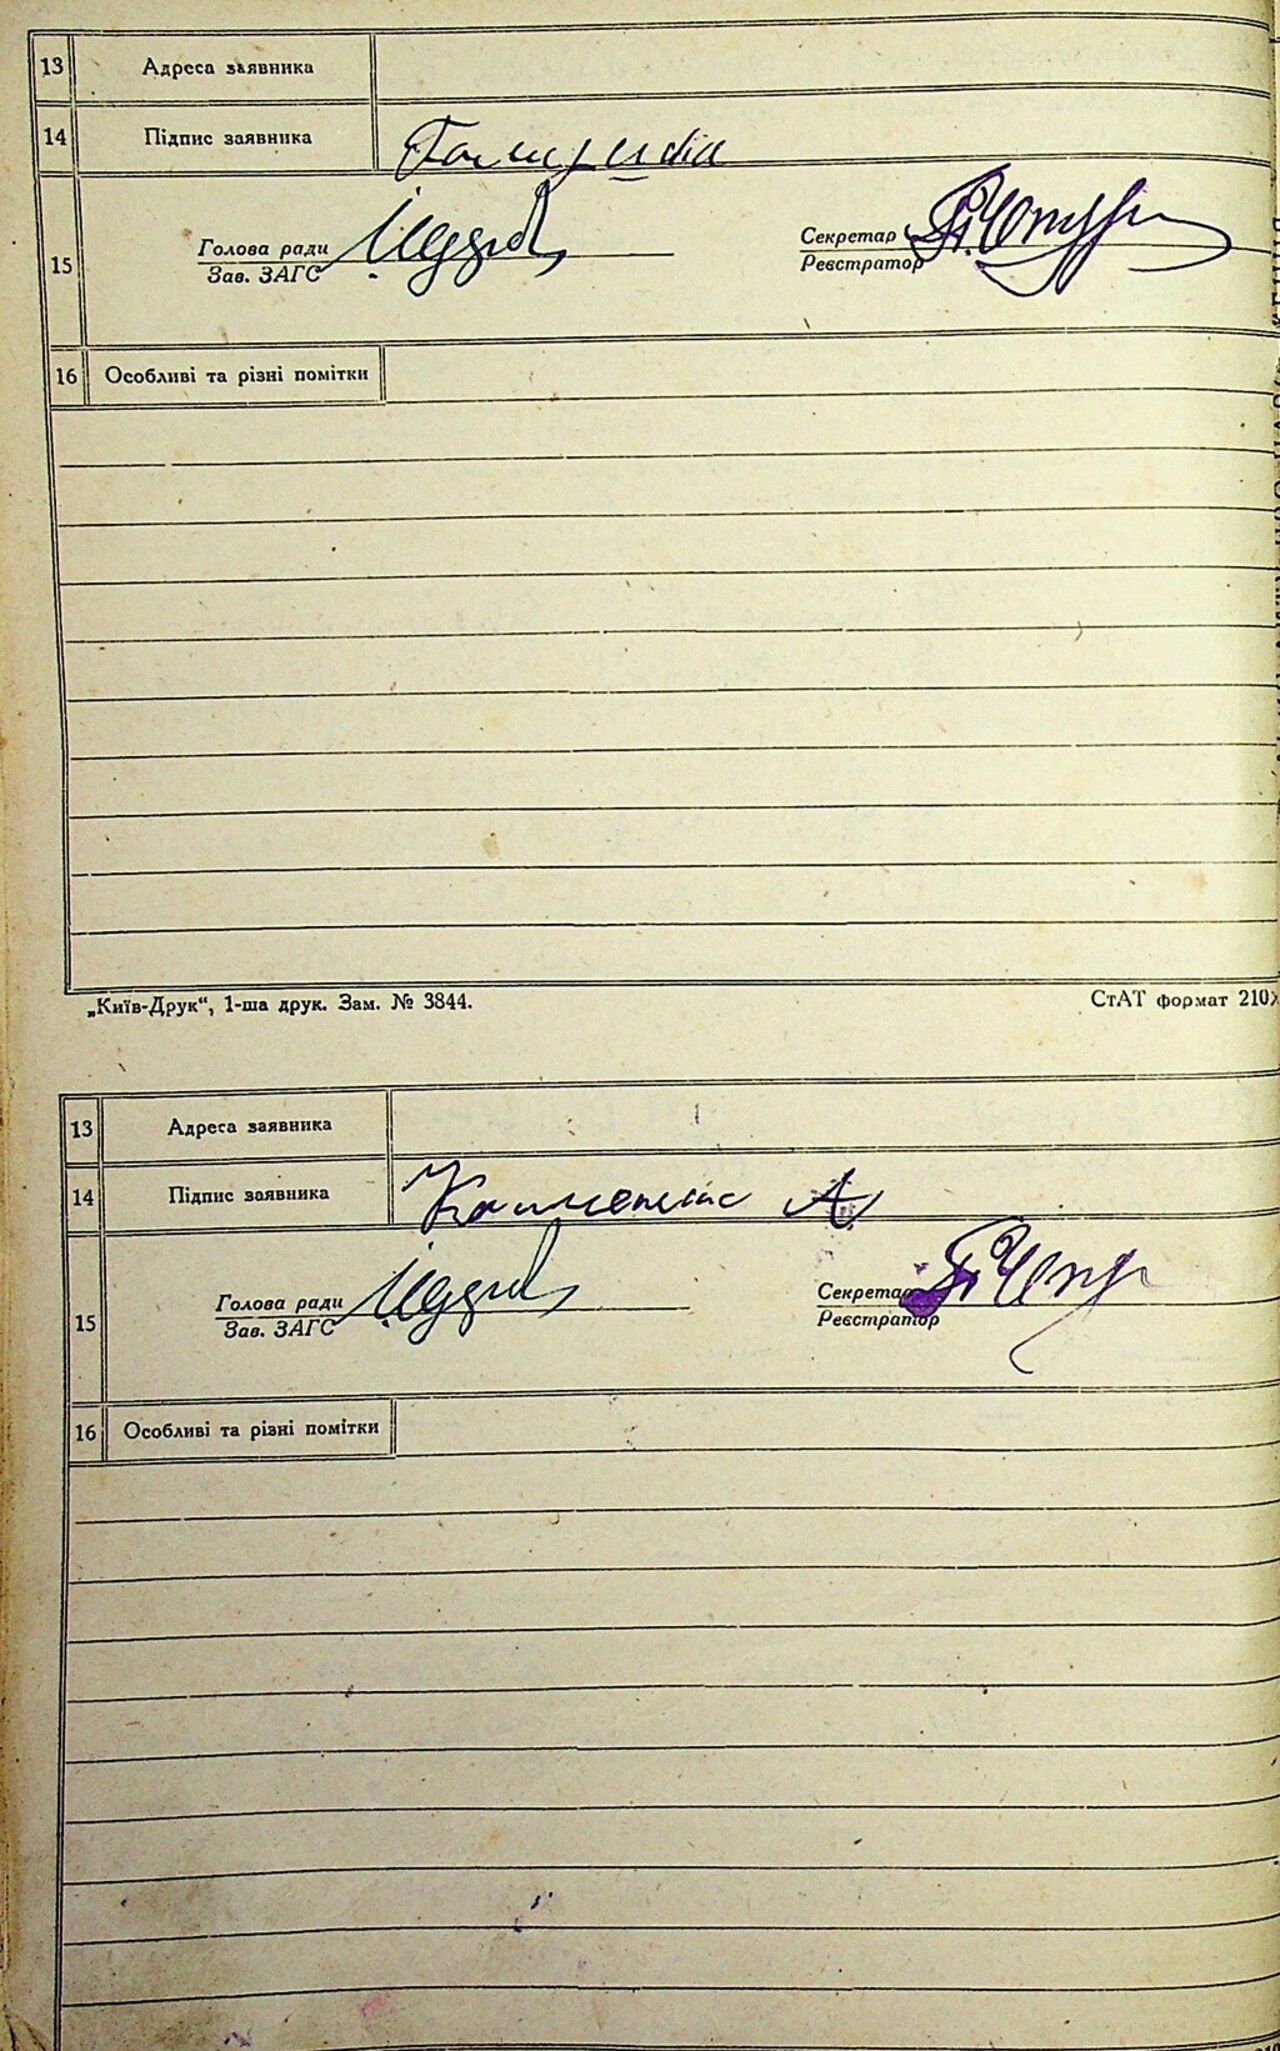 13 Адреса заявника
14 Підпис заявника
15 Голова ради Секретар
Зав. ЗАГС Реєстратор
16 Особливі та різні помітки
„Київ-Друк“, 1-ша друк. Зам. № 3844. СтАТ формат 210
13 Адреса заявника
14 Підпис заявника А
15 Голова ради Секретар
Зав. ЗАГС Реєстратор
16 Особливі та різні помітки